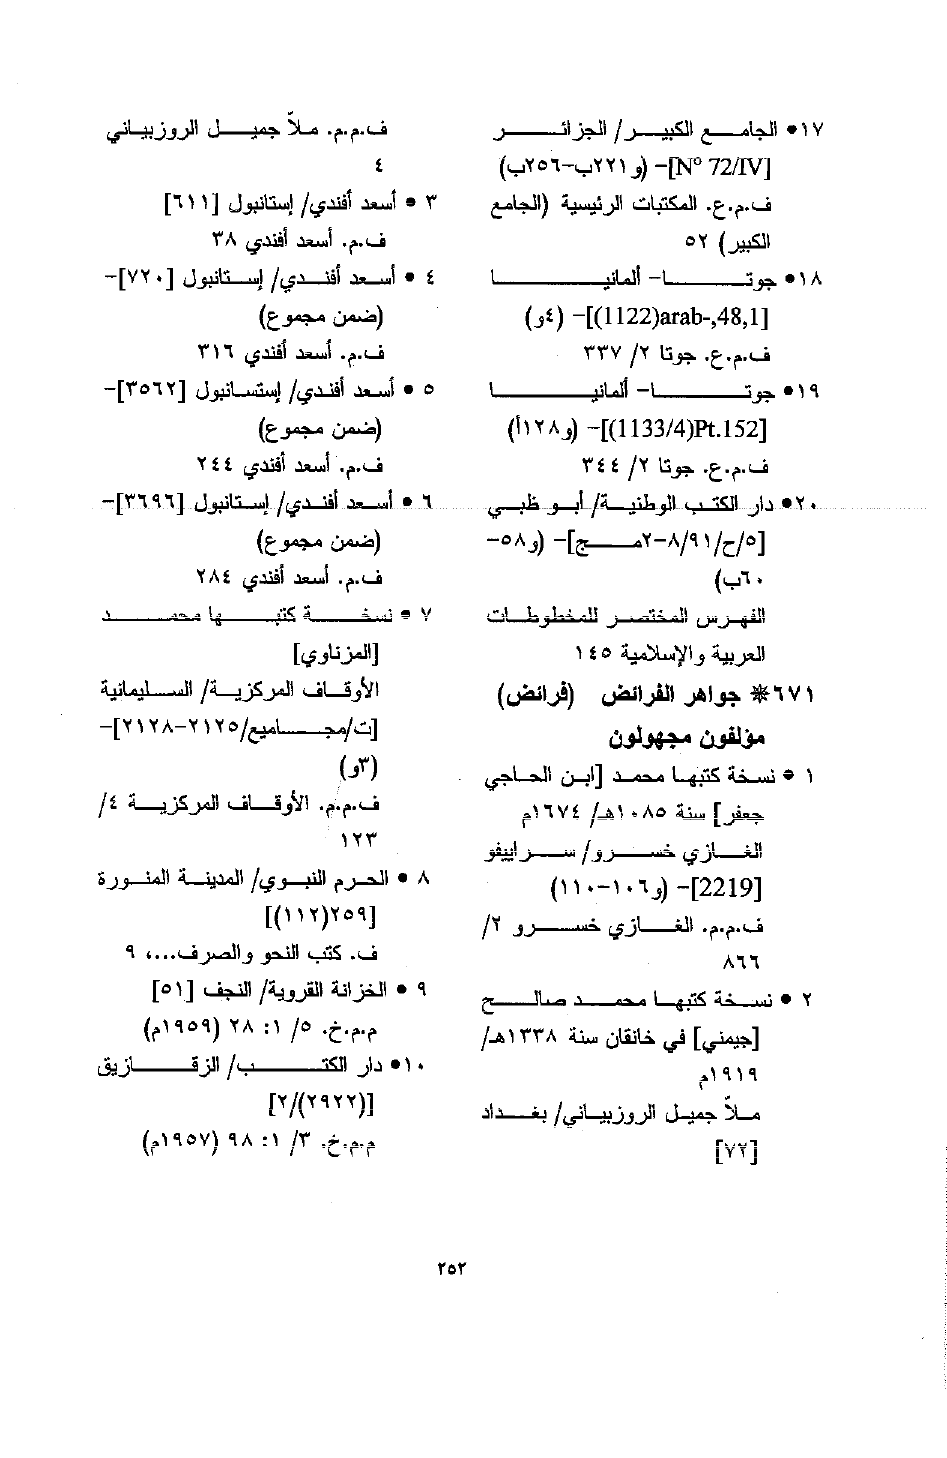 ١٧• الجامع الكبير/ الجزائر
[N° 72/IV]- (و٢٢١ب-٢٥٦ب)
ف.م.ع. المكتبات الرئيسية (الجامع
الكبير) ٥٢
١٨• جوتا- ألمانيا
[arab-,48,1(1122)]- (٤و)
ف.م.ع. جوتا ٢/ ٣٣٧
١٩• جوتا- ألمانيا
[Pt.152(1133/4)]- (و١٢٨أ)
ف.م.ع. جوتا ٢/ ٣٤٤
٢٠• دار الكتب الوطنية/ أبو ظبي
[٥/ح/٨/٩١-٢مج]- (و٥٨-
٦٠ب)
الفهرس المختصر للمخطوطات
العربية والإسلامية ١٤٥
٦٧١❋ جواهر الفرائض (فرائض)
مؤلفون مجهولون
١ • نسخة كتبها محمد [ابن الحاجي
جعفر] سنة ١٠٨٥هـ/ ١٦٧٤م
الغازي خسرو/ سراييفو
[2219]- (و١٠٦-١١٠)
ف.م.م. الغازي خسرو ٢/
٨٦٦
٢ • نسخة كتبها محمد صالح
[جيمني] في خانقان سنة ١٣٣٨هـ/
١٩١٩م
ملاّ جميل الروزبياني/ بغداد
[٧٢]
ف.م.م. ملاّ جميل الروزبياني
٤
٣ • أسعد أفندي/ إستانبول [٦١١]
ف.م. أسعد أفندي ٣٨
٤ • أسعد أفندي/ إستانبول [٧٢٠]-
(ضمن مجموع)
ف.م. أسعد أفندي ٣١٦
٥ • أسعد أفندي/ إستانبول [٣٥٦٢]-
(ضمن مجموع)
ف.م. أسعد أفندي ٢٤٤
٦ • أسعد أفندي/ إستانبول [٣٦٩٦]-
(ضمن مجموع)
ف.م. أسعد أفندي ٢٨٤
٧ • نسخة كتبها محمد
[المزناوي]
الأوقاف المركزية/ السليمانية
[ت/مجاميع/٢١٢٥-٢١٢٨]-
(٣و)
ف.م.م. الأوقاف المركزية ٤/
١٢٣
٨ • الحرم النبوي/ المدينة المنورة
[٢٥٩(١١٢)]
ف. كتب النحو والصرف...، ٩
٩ • الخزانة القروية/ النجف [٥١]
م.م.خ. ٥/ ١: ٢٨ (١٩٥٩م)
١٠• دار الكتب/ الزقازيق
[(٢٩٢٢)/٢]
م.م.خ. ٣/ ١: ٩٨ (١٩٥٧م)
٢٥٢